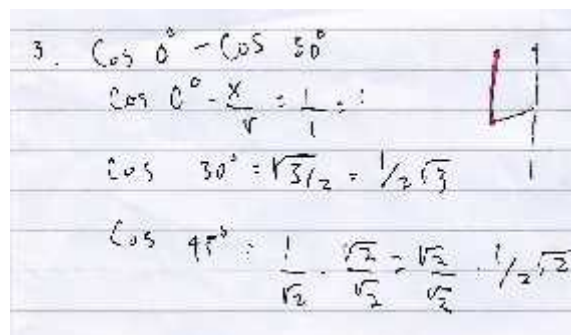 3. Cos 0° - Cos 30°
Cos 0° = x/r = 1/1 = 1
Cos 30° = √3/2 = 1/2 √3
Cos 45° = 1/√2 . √2/√2 = √2/√2 . 1/2 √2